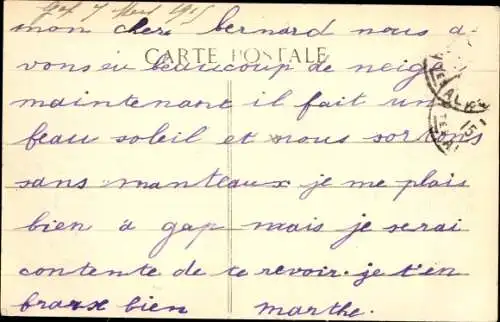 Gap 7 Mars 1915
mon cher bernard nous a-
CARTE POSTALE
vons eu beaucoup de neige
maintenant il fait un
beau soleil et nous sortons
sans manteaux je me plais
bien à gap mais je serai
contente de te revoir. je t'em
brasse bien marthe.